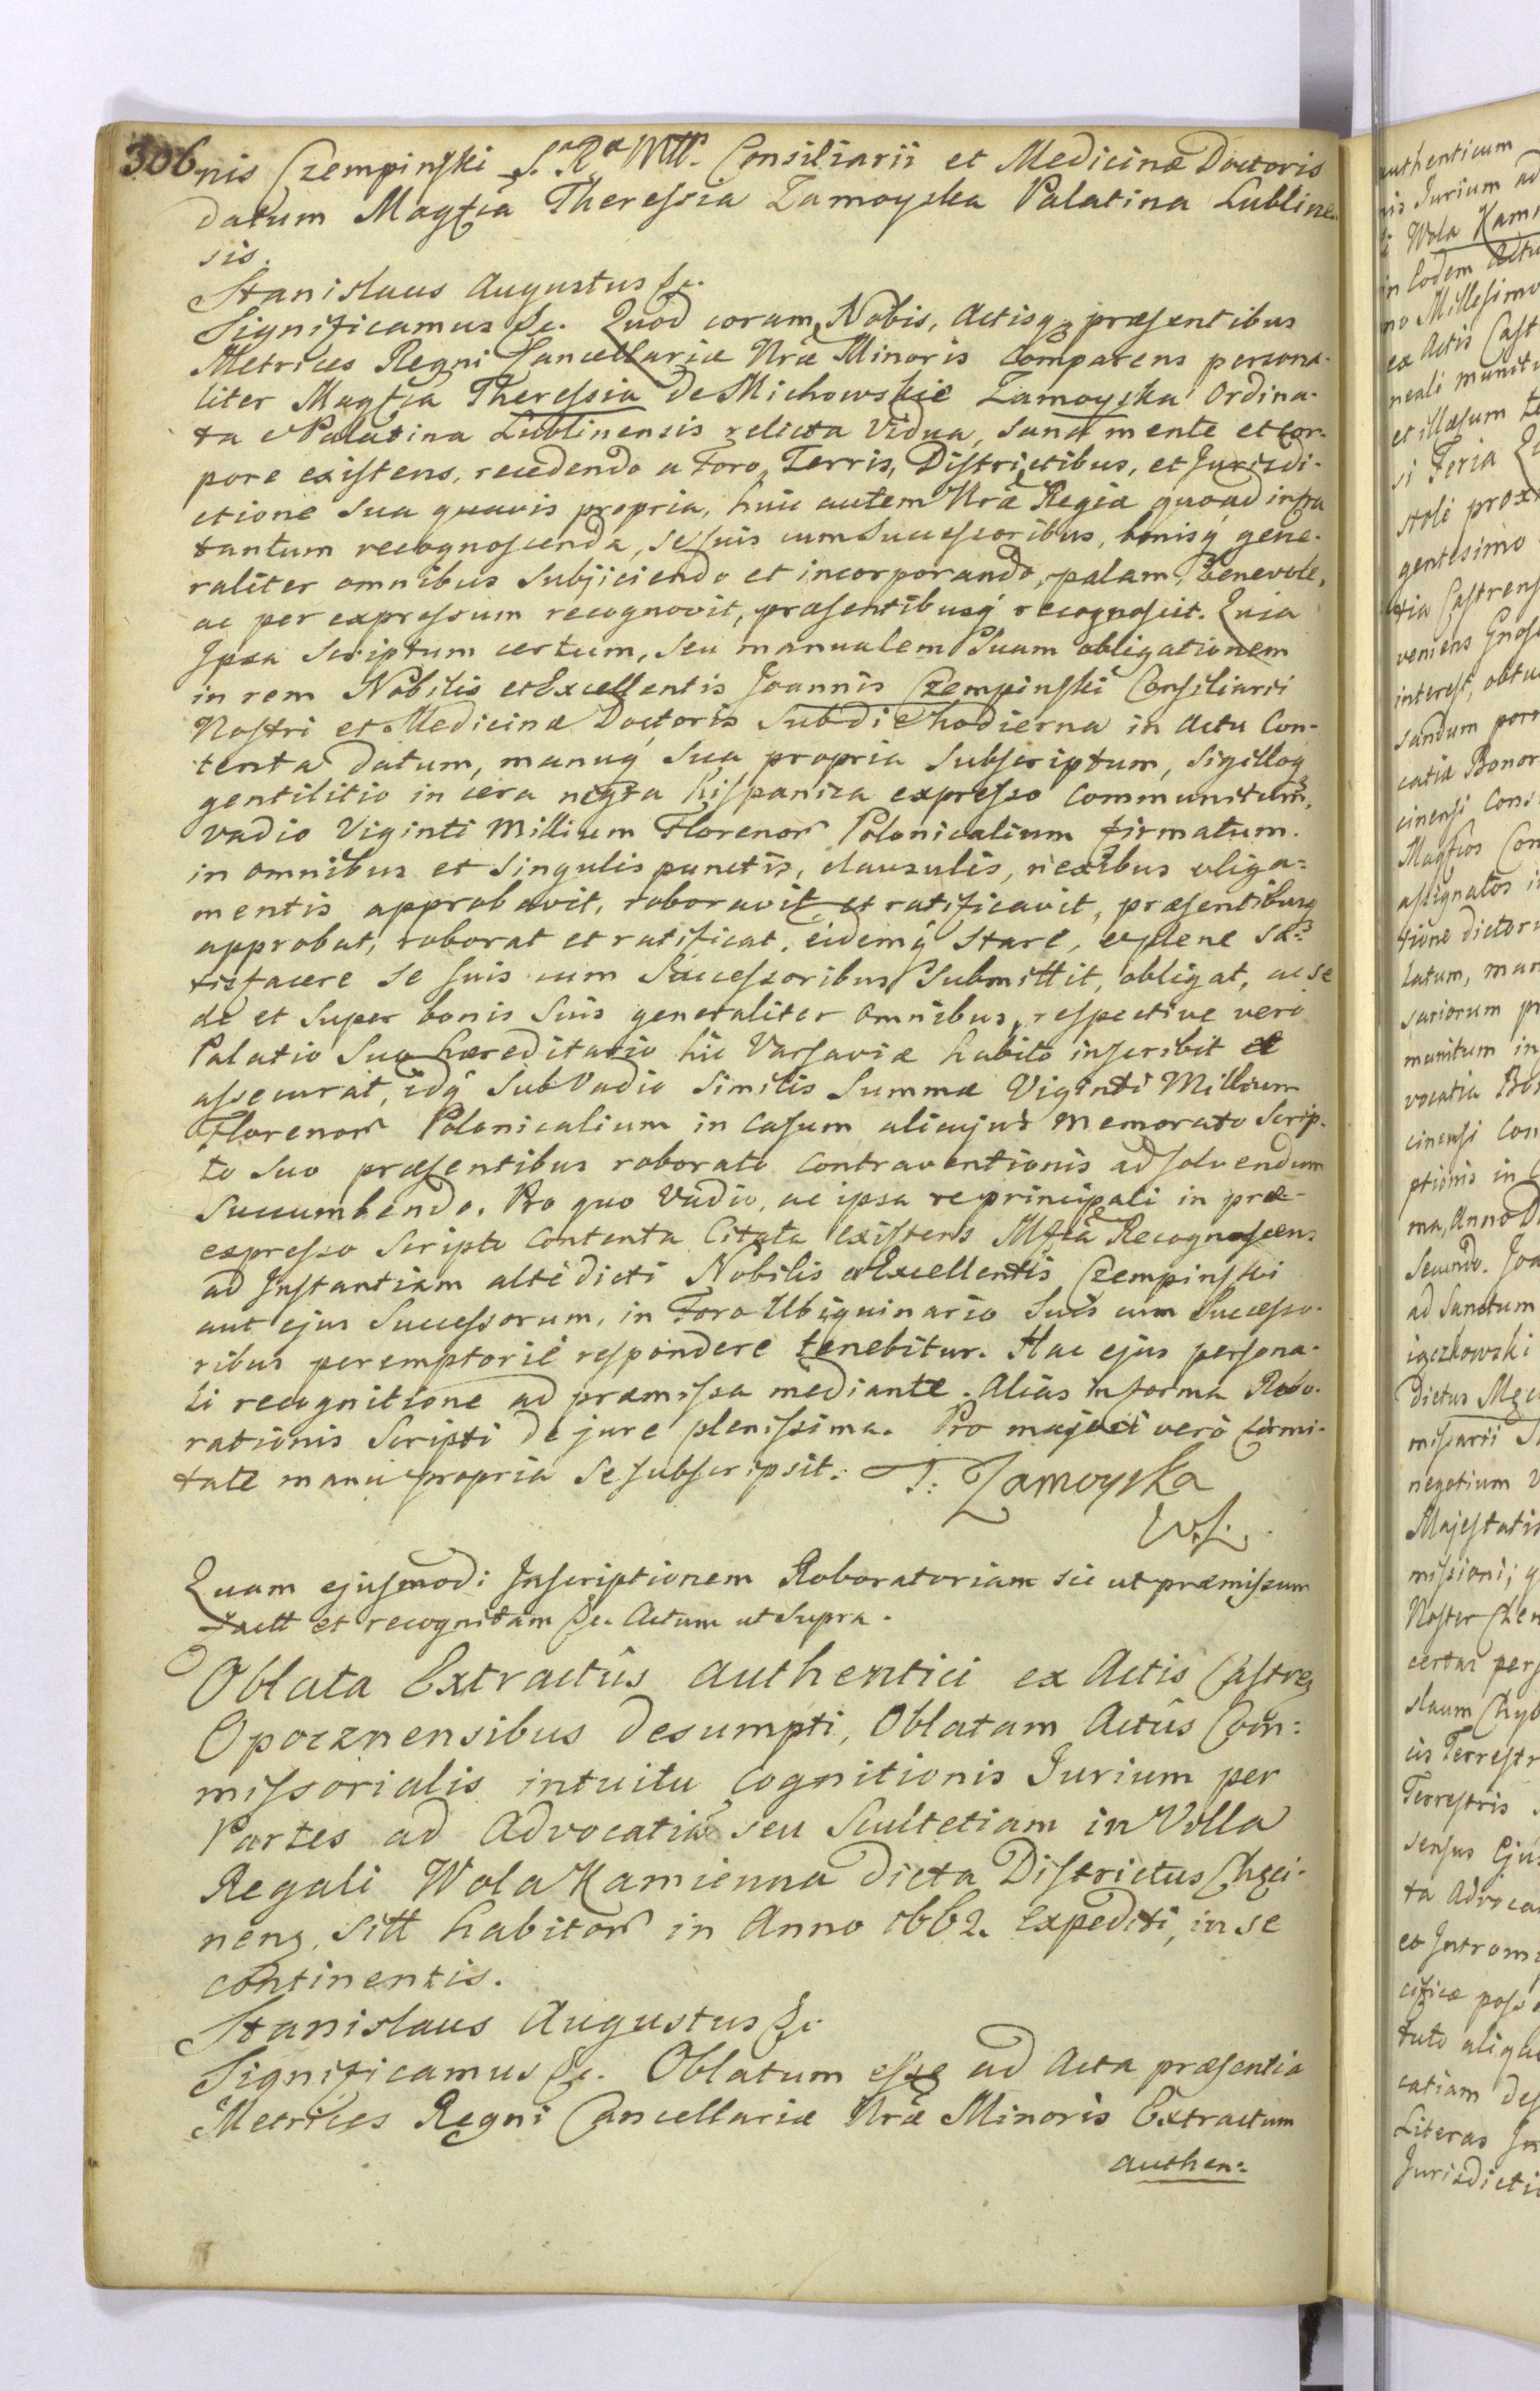 306
nis Czempinski S. Ra Mtt. Consiliarii et Medicinæ Doctoris
datum Magfca Theressia Zamoyska Palatina Lublinen-
sis.
Stanislaus Augustus &c.
Significamus &c. Quod coram Nobis, Actisq3 præsentibus
Metrices Regni Cancellariæ Nræ Minoris Comparens persona-
liter Magfca Theressia de Michowskie Zamoyska Ordina-
ta Palatina Lublinensis relicta Vidua, sana mente et cor-
pore existens, recedendo a Foro, Terris, Districtibus, et Jurisdi-
ctione sua quavis propria, huic autem Nræ Regiæ quoad infra
tantum recognoscenda, se suis cum Successoribus, bonisq́ gene-
raliter omnibus subjiciendo et incorporando, palam, benevole,
ac per expressum recognovit, præsentibusq́ recognoscit. Quia
Ipsa Scriptum certum, seu manualem Suam obligationem
in rem Nobilis et Excellentis Joannis Czempinski Consiliarii
Nostri et Medicinæ Doctoris sub die hodierna in Actu Con-
tenta datum, manuq́ sua propria subscriptum, Sigilloq́
gentilitio in cera nigra hispanica expresso communitum,
vadio Viginti Millium Florenor Polonicalium firmatum.
in omnibus et singulis punctis, clausulis, nexibus oliga=
mentis approbavit, roboravit et ratificavit, præsentibusq́
approbat, roborat et ratificat, eidemq́ stare, et plene sa=
tisfacere se suis cum Successoribus Submittit, obligat, ac se
de et super bonis suis generaliter omnibus, respective vero
Palatio Suo hæreditario hic Varsaviæ habito inscribit et
assecurat, idq́ sub Vadio similis Summæ Viginti Millium
Florenor Polonicalium in casum alicujus memorato Scrip-
to suo præsentibus roborato contraventionis ad solvendum
succumbendo. Pro quo Vadio, ac ipsa re principali in præ-
expresso scripto contenta Citata existens Mfca Recognoscens
ad Instantiam altè dicti Nobilis et Excellentis Czempinski
aut ejus Successorum, in Foro Ubiquinario suis cum Successo-
ribus peremptorie respondere tenebitur. Hac ejus persona-
li recognitione ad præmissa mediante. Alias in forma Robo-
rationis Scripti de jure plenissima. Pro majori verò firmi-
tate manu propria se subscripsit. T: Zamoyska
W.L.
Quam ejusmodi Inscriptionem Roboratoriam sic ut præmissum
factt et recognitam &c. Actum ut Supra.
Oblata Extractûs Authentici ex Actis Castren3
Opocznensibus desumpti, Oblatam Actûs Com:
missorialis intuitu cognitionis Jurium per
Partes ad Advocatiam seu Scultetiam in Villa
Regali Wola Kamienna dicta Districtus Chęci-
nen3. sitt habitor in Anno 1662. Expediti, in se
continentis.
Stanislaus Augustus &c.
Significamus &c. Oblatum esse ad Acta præsentia
Metrices Regni Cancellariæ Nræ Minoris Extractum
authen=
authenticum
nis Jurium ad
Wola Kami
in Eodem Actu
no Millesimo
ex Actis Cast
neali munitu
et illæsum
si Feria
stoli prox
gentesimo
tia Castrens
veniens
interest, obtu
sandum porr
catiæ Bonor
cinensi Cons
Magfcos Com
assignatos i
tione dictoru
latum, man
sariorum pr
munitum in
vocatia Bo
cinensi Con
ptionis in
ma, Anno D
secundo. Joa
ad Sanctum
dictus
missarii
negotium v
Majestatis
missioni; q
Noster
certas pers
slaum Chyb
cis Terrestr
Terrestris
sensus Ejus
ta Advoca
et Intromi
cificæ poss
tuto aliqu
catiam des
Literas In
Jurisdicti